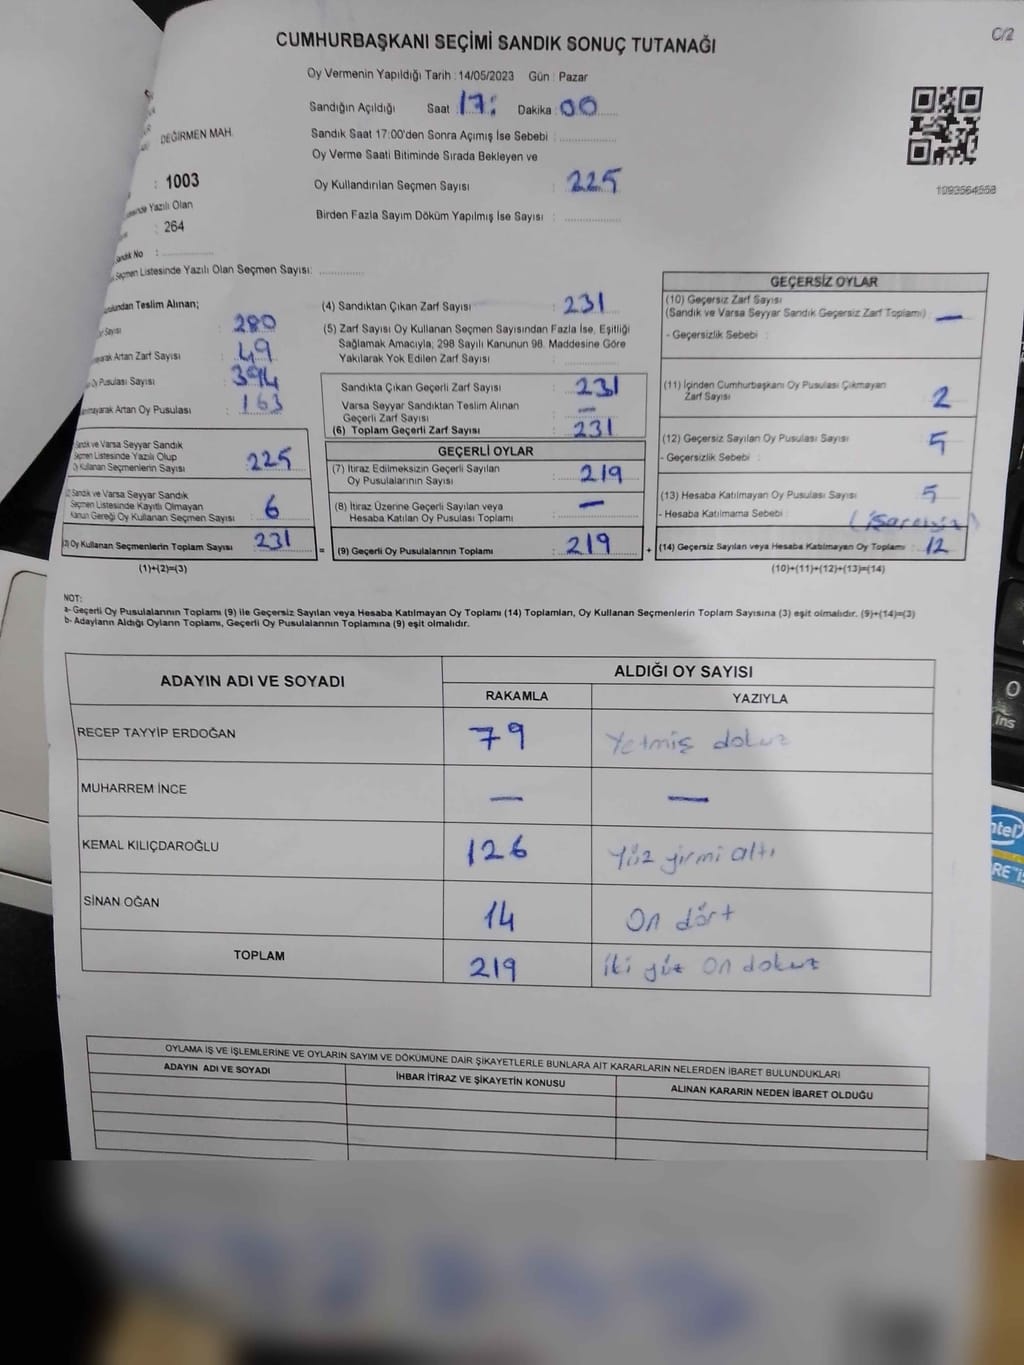 C/2
CUMHURBAŞKANI SEÇİMİ SANDIK SONUÇ TUTANAĞI
Oy Vermenin Yapıldığı Tarih : 14/05/2023 Gün : Pazar
Sandığın Açıldığı Saat 17: Dakika : 00
DEĞİRMEN MAH.
Sandık Saat 17:00'den Sonra Açımış İse Sebebi :
Oy Verme Saati Bitiminde Sırada Bekleyen ve
: 1003
Oy Kullandırılan Seçmen Sayısı : 225
1093564558
Yazılı Olan
: 264
Birden Fazla Sayım Döküm Yapılmış İse Sayısı :
Sandık No :
Seçmen Listesinde Yazılı Olan Seçmen Sayısı:
Teslim Alınan;
Sayısı : 280
Artan Zarf Sayısı : 49
Oy Pusulası Sayısı : 394
Artan Oy Pusulası : 163
Sandık ve Varsa Seyyar Sandık
Seçmen Listesinde Yazılı Olup
Oy Kullanan Seçmenlerin Sayısı : 225
Sandık ve Varsa Seyyar Sandık
Seçmen Listesinde Kayıtlı Olmayan
Kanun Gereği Oy Kullanan Seçmen Sayısı : 6
(3) Oy Kullanan Seçmenlerin Toplam Sayısı : 231
(1)+(2)=(3)
(4) Sandıktan Çıkan Zarf Sayısı : 231
(5) Zarf Sayısı Oy Kullanan Seçmen Sayısından Fazla İse, Eşitliği
Sağlamak Amacıyla, 298 Sayılı Kanunun 98. Maddesine Göre
Yakılarak Yok Edilen Zarf Sayısı :
Sandıkta Çıkan Geçerli Zarf Sayısı : 231
Varsa Seyyar Sandıktan Teslim Alınan
Geçerli Zarf Sayısı : —
(6) Toplam Geçerli Zarf Sayısı : 231
GEÇERLİ OYLAR
(7) İtiraz Edilmeksizin Geçerli Sayılan
Oy Pusulalarının Sayısı : 219
(8) İtiraz Üzerine Geçerli Sayılan veya
Hesaba Katılan Oy Pusulası Toplamı : —
= (9) Geçerli Oy Pusulalarının Toplamı : 219 +
GEÇERSİZ OYLAR
(10) Geçersiz Zarf Sayısı
(Sandık ve Varsa Seyyar Sandık Geçersiz Zarf Toplamı) : —
- Geçersizlik Sebebi :
(11) İçinden Cumhurbaşkanı Oy Pusulası Çıkmayan
Zarf Sayısı : 2
(12) Geçersiz Sayılan Oy Pusulası Sayısı : 5
- Geçersizlik Sebebi :
(13) Hesaba Katılmayan Oy Pusulası Sayısı : 5
- Hesaba Katılmama Sebebi : (işaretsiz)
(14) Geçersiz Sayılan veya Hesaba Katılmayan Oy Toplamı : 12
(10)+(11)+(12)+(13)=(14)
NOT:
a- Geçerli Oy Pusulalarının Toplamı (9) ile Geçersiz Sayılan veya Hesaba Katılmayan Oy Toplamı (14) Toplamları, Oy Kullanan Seçmenlerin Toplam Sayısına (3) eşit olmalıdır. (9)+(14)=(3)
b- Adayların Aldığı Oyların Toplamı, Geçerli Oy Pusulalarının Toplamına (9) eşit olmalıdır.
ADAYIN ADI VE SOYADI
ALDIĞI OY SAYISI
RAKAMLA YAZIYLA
RECEP TAYYİP ERDOĞAN 79 Yetmiş dokuz
MUHARREM İNCE — —
KEMAL KILIÇDAROĞLU 126 Yüz yirmi altı
SİNAN OĞAN 14 On dört
TOPLAM 219 İki yüz on dokuz
OYLAMA İŞ VE İŞLEMLERİNE VE OYLARIN SAYIM VE DÖKÜMÜNE DAİR ŞİKAYETLERLE BUNLARA AİT KARARLARIN NELERDEN İBARET BULUNDUKLARI
ADAYIN ADI VE SOYADI İHBAR İTİRAZ VE ŞİKAYETİN KONUSU ALINAN KARARIN NEDEN İBARET OLDUĞU
0
Ins